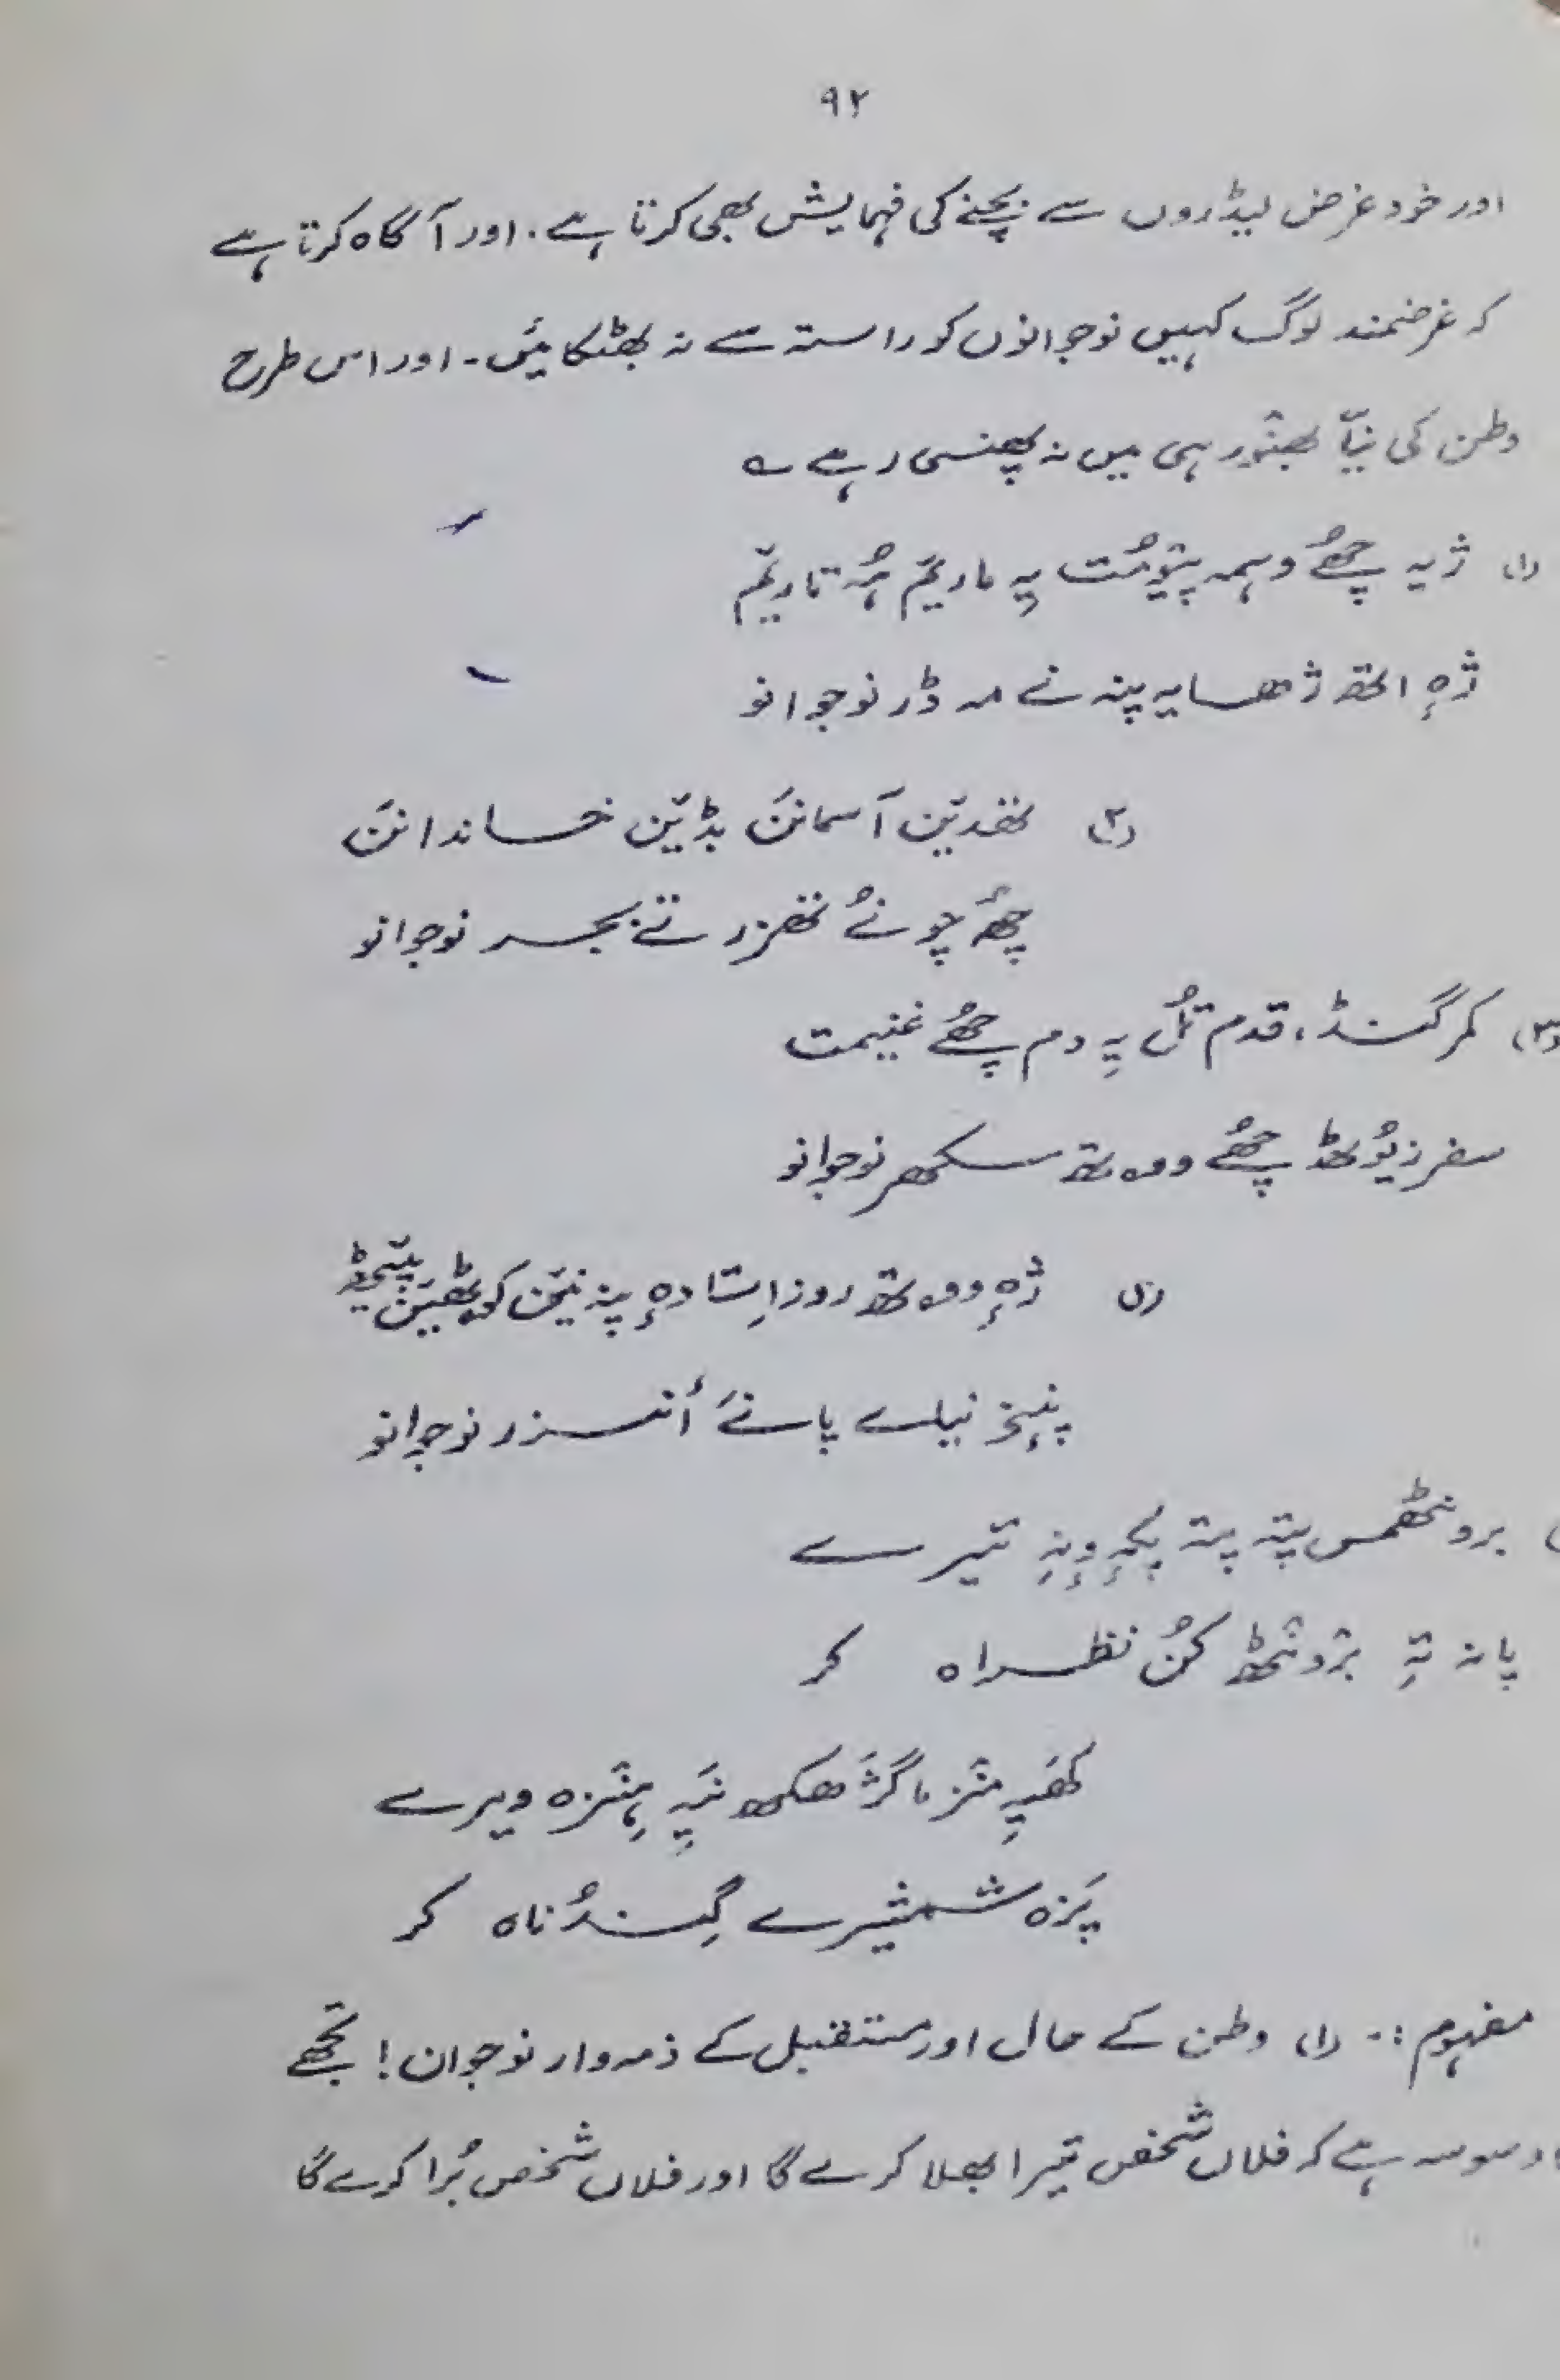 ۹۲
اور خود غرض لیڈروں سے بچنے کی فہمایش بھی کرتا ہے. اور آگاہ کرتا ہے
کہ غرضمند لوگ کہیں نوجوانوں کو راستہ سے نہ بھٹکائیں۔ اور اس طرح
وطن کی نیّا بھنور ہی میں نہ پھنسی رہے ؎
(۱) ژیہ چھُے وہمہ پیومُت یہِ ماریٚم ہُہ تاریٚم
ژہٕ اتھ ژھایہ پننہ نے مہ ڈر نوجوانو
(۲) تھدیٚن آسمانَن بڈیٚن خاندانَن
چھُے چونُے تھزر تے بجر نوجوانو
(۳) کمر گنڈ، قدم تُل یہِ دم چھُے غنیمت
سفر زیوٗٹھ چھُے ووتھ سکھر نوجوانو
ژہٕ ووتھ روز اِستادہٕ پننیٚن کوٹھیٚن پیٚٹھ
پنٕنۍ نیلے پانَے أنزر نوجوانو
برونٹھمس پتہ پتہ پکہٕ وٕنہِ تیرے
پانہ تہِ برونٹھ کُن نظراہ کر
کھَہِ منز ما گژھکھ نَیہِ ہنزہ ویرے
پَزہ شمشیرے گِندُناہ کر
مفہوم :۔ (۱) وطن کے حال اور مستقبل کے ذمہ وار نوجوان! تجھے
وسوسہ ہے کہ فلاں شخص تیرا بھلا کرے گا اور فلاں شخص بُرا کرے گا